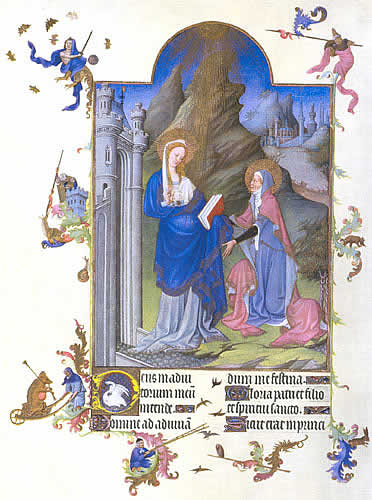 Deus in adiu
torium meū
intende
Domine ad adiuuā
dum me festina.
Gloria patri et filio
et spiritui sancto.
Sicut erat in princi